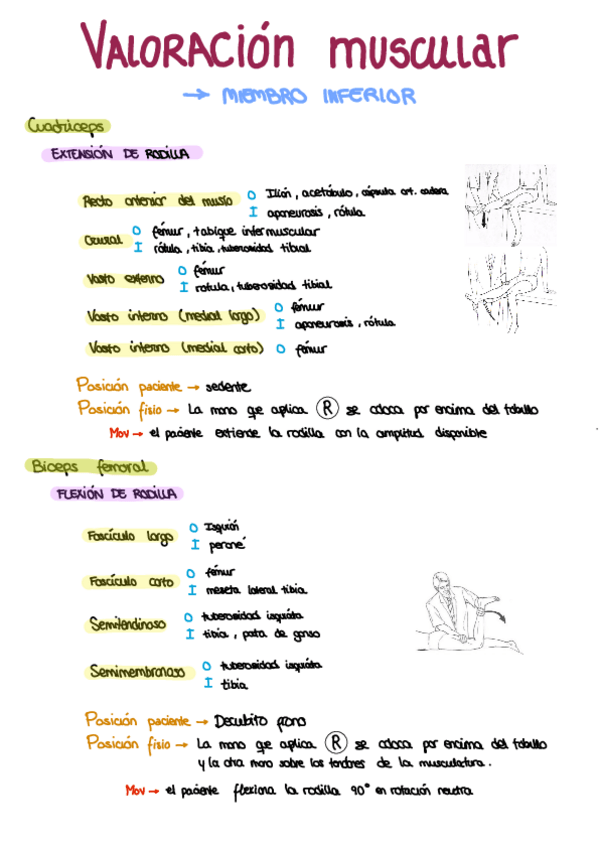 VALORACIÓN muscular
→ MIEMBRO INFERIOR
Cuadríceps
EXTENSIÓN DE RODILLA
Recto anterior del muslo
O Ilión, acetábulo, cápsula art. cadera
I aponeurosis, rótula
Crural
O fémur, tabique intermuscular
I rótula, tibia, tuberosidad tibial
Vasto externo
O fémur
I rotula, tuberosidad tibial
Vasto interno (medial largo)
O fémur
I aponeurosis, rótula
Vasto interno (medial corto) O fémur
Posición paciente → sedente
Posición fisio → La mano que aplica R se coloca por encima del tobillo
Mov → el paciente extiende la rodilla con la amplitud disponible
Bíceps femoral
FLEXIÓN DE RODILLA
Fascículo largo
O Isquión
I peroné
Fascículo corto
O fémur
I meseta lateral tibia
Semitendinoso
O tuberosidad isquiáta
I tibia, pata de ganso
Semimembranoso
O tuberosidad isquiáta
I tibia
Posición paciente → Decubito prono
Posición fisio → La mano que aplica R se coloca por encima del tobillo
y la otra mano sobre los tendones de la musculatura.
Mov → el paciente flexiona la rodilla 90° en rotación neutra